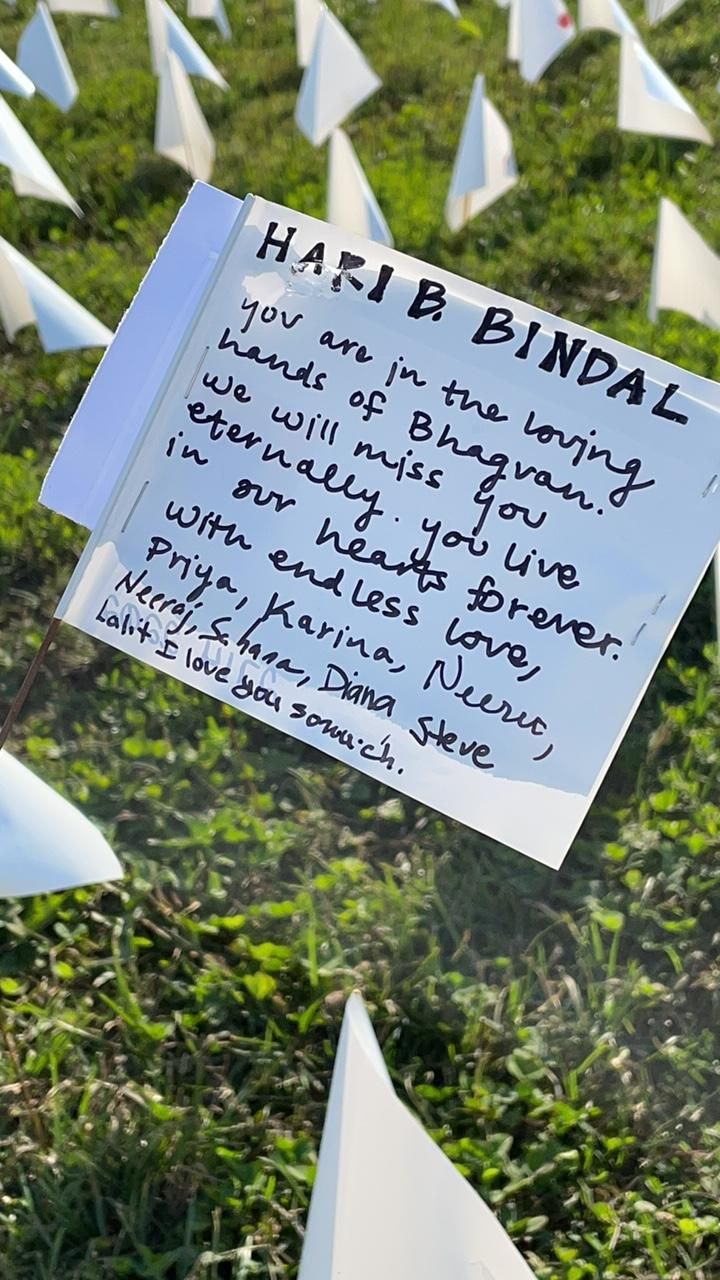 HARI B. BINDAL
you are in the loving
hands of Bhagvan.
we will miss you
eternally. you live
in our hearts forever.
with endless love,
Priya, Karina, Neeru,
Neeraj, Sahana, Diana Steve
Lalit I love you so much.